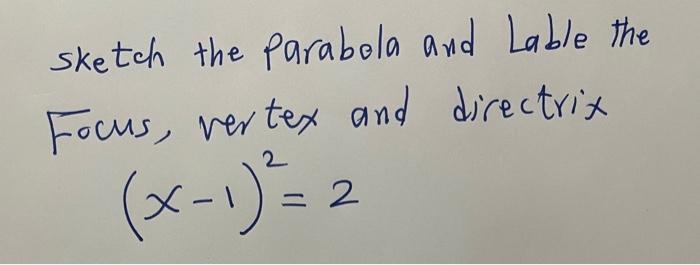 sketch the parabola and Lable the
Focus, vertex and directrix
(x-1)² = 2